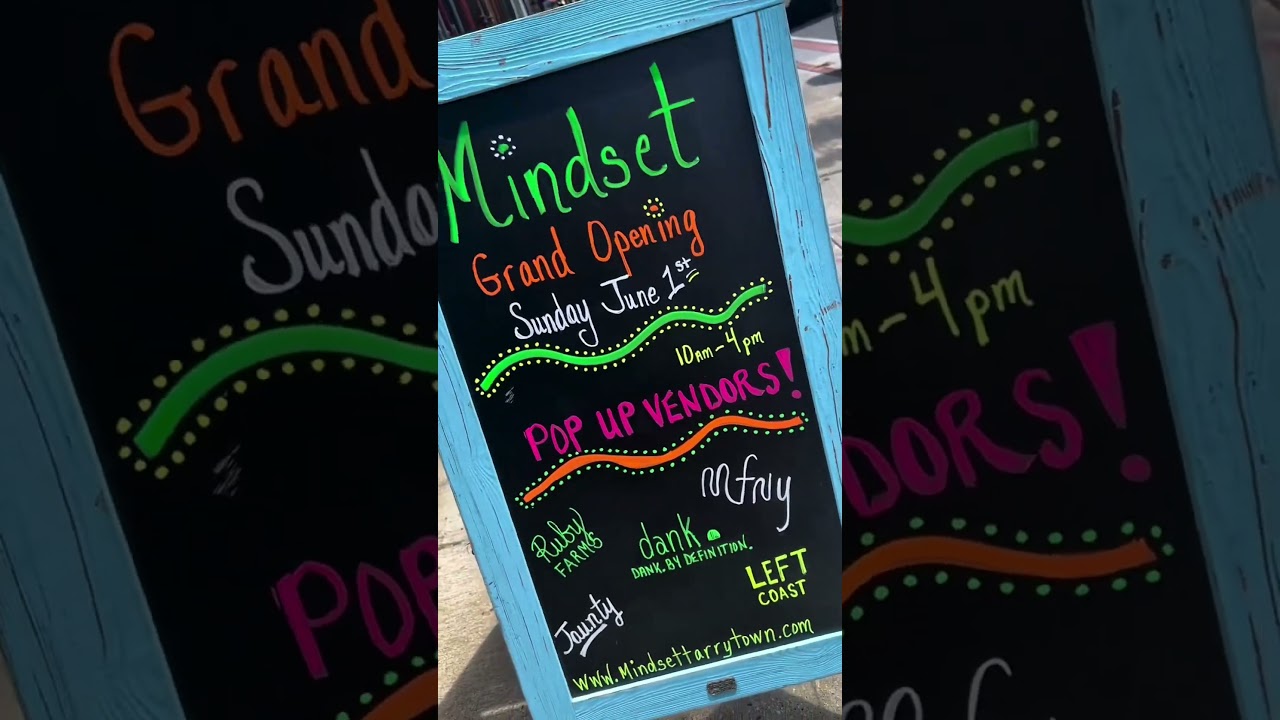 Mindset
Grand Opening
Sunday June 1st
10am - 4pm
POP UP VENDORS!
mfny
Ruby
FARMS
dank.
DANK. BY DEFINITION.
LEFT
COAST
Jaunty
www.Mindsettarrytown.com